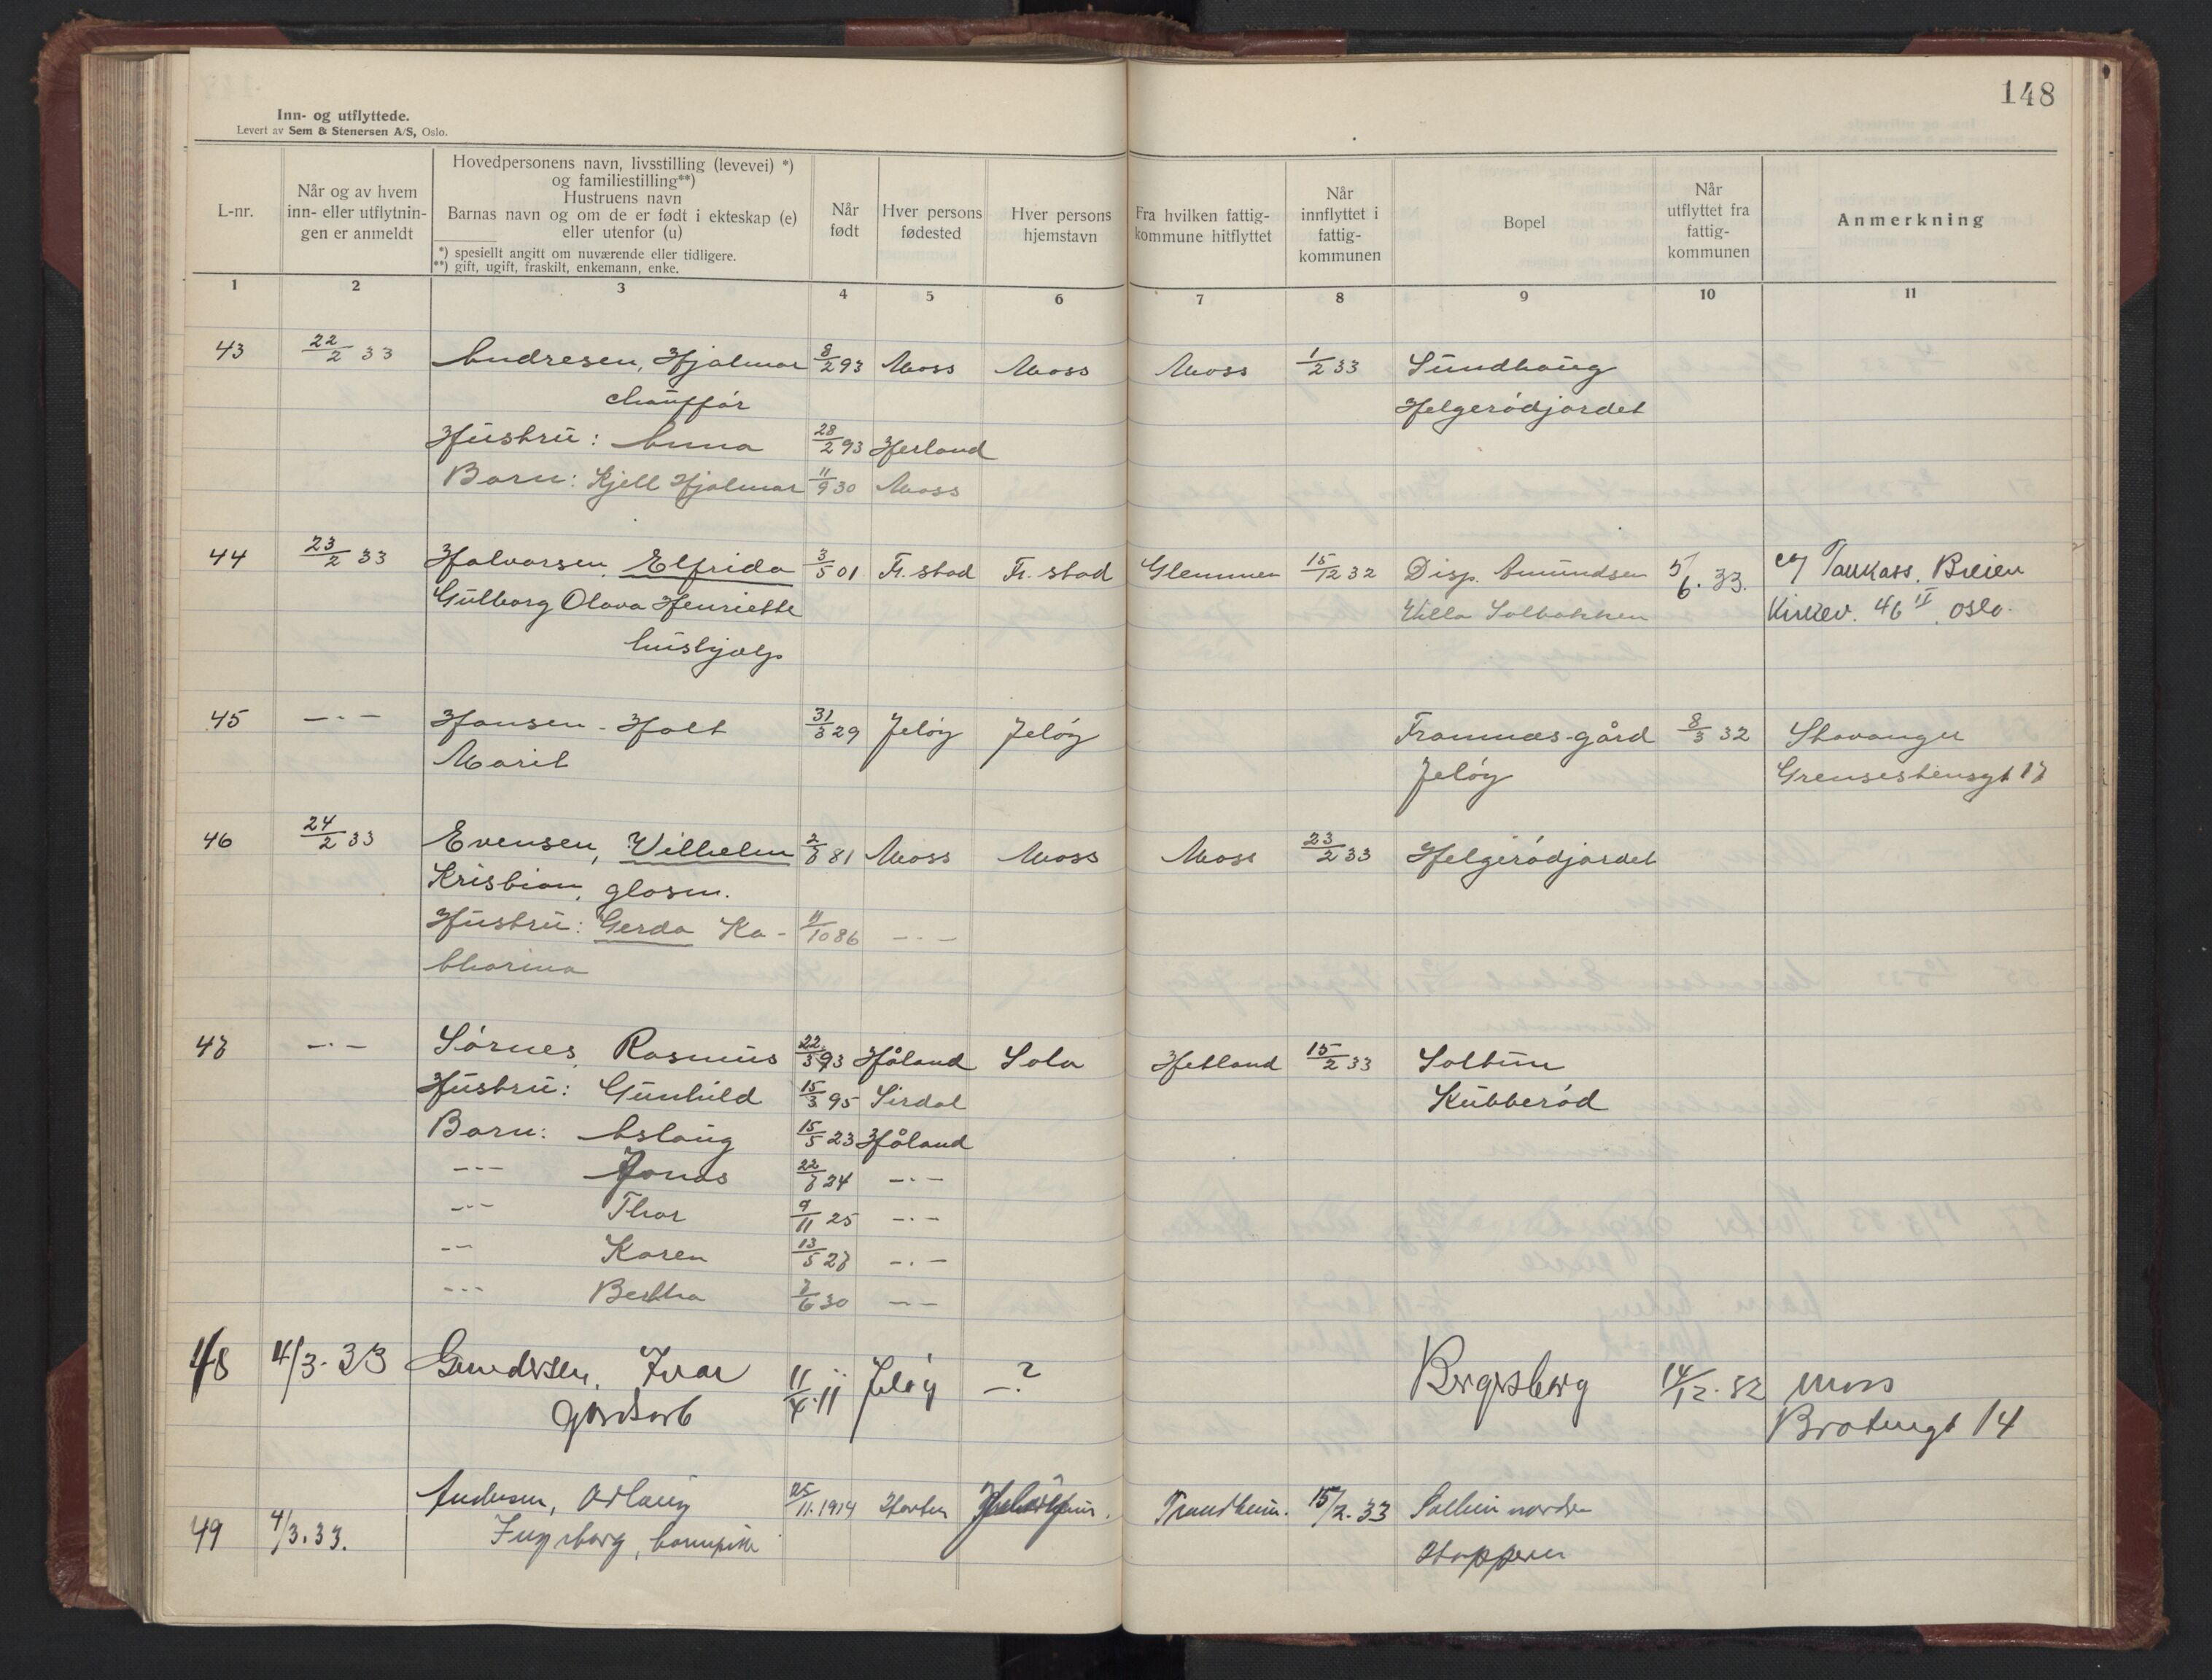 148
Inn- og utflyttede.
Levert av Sem & Stenersen A/S, Oslo.
L-nr.
Når og av hvem
inn- eller utflytnin-
gen er anmeldt
Hovedpersonens navn, livsstilling (levevei) *)
og familiestilling**)
Hustruens navn
Barnas navn og om de er født i ekteskap (e)
eller utenfor (u)
*) spesiellt angitt om nuværende eller tidligere.
**) gift, ugift, fraskilt, enkemann, enke.
Når
født
Hver persons
fødested
Hver persons
hjemstavn
Fra hvilken fattig-
kommune hitflyttet
Når
innflyttet i
fattig-
kommunen
Bopel
Når
utflyttet fra
fattig-
kommunen
Anmerkning
1 2 3 4 5 6 7 8 9 10 11
43 22/2 33 Andresen, Hjalmar 8/2 93 Moss Moss Moss 1/2 33 Sundhaug
chauffør Helgerødjordet
Hustru: Anna 28/2 93 Herland
Barn: Kjell Hjalmar 11/9 30 Moss
44 23/2 33 Halvorsen, Elfrida 3/5 01 Fr. stad Fr. stad Glemmen 15/12 32 Disp. Amundsen 5/6. 33.
Gulborg Olava Henriette Villa Solbakken Kirkev. 46 II. Oslo.
hushjælp
45 — · — Hansen - Holt 31/3 29 Jeløy Jeløy Framnæs-gård 8/3 32 Stavanger
Marit Jeløy Grensestensgt 17
46 24/2 33 Evensen, Wilhelm 81 Moss Moss Moss 23/2 33 Helgerødjordet
Kristian, glasm.
Hustru: Gerda Ka- 11/10 86 — · —
tharina
47 — · — Sørnes, Rasmus 22/3 93 Håland Sola Hetland 15/2 33 Soltun
Hustru: Gunhild 15/3 95 Sirdal Kubberød
Barn: Aslaug 15/5 23 Håland
— · — Jonas 24 — · —
— · — Thor 9/11 25 — · —
— · — Karen 13/5 27 — · —
— · — Bertha 7/6 30 — · —
48 4/3. 33 Gundersen, Ivar 11/4. 11 Jeløy — ? Bergsberg 14/12. 32 Moss
gårdsarb Bratengt 14
Andersen, Aslaug 25/11. 1914 Horten Trondheim. 15/2. 33 Solheim nordre
49 4/3. 33. Ingeborg, barnepike